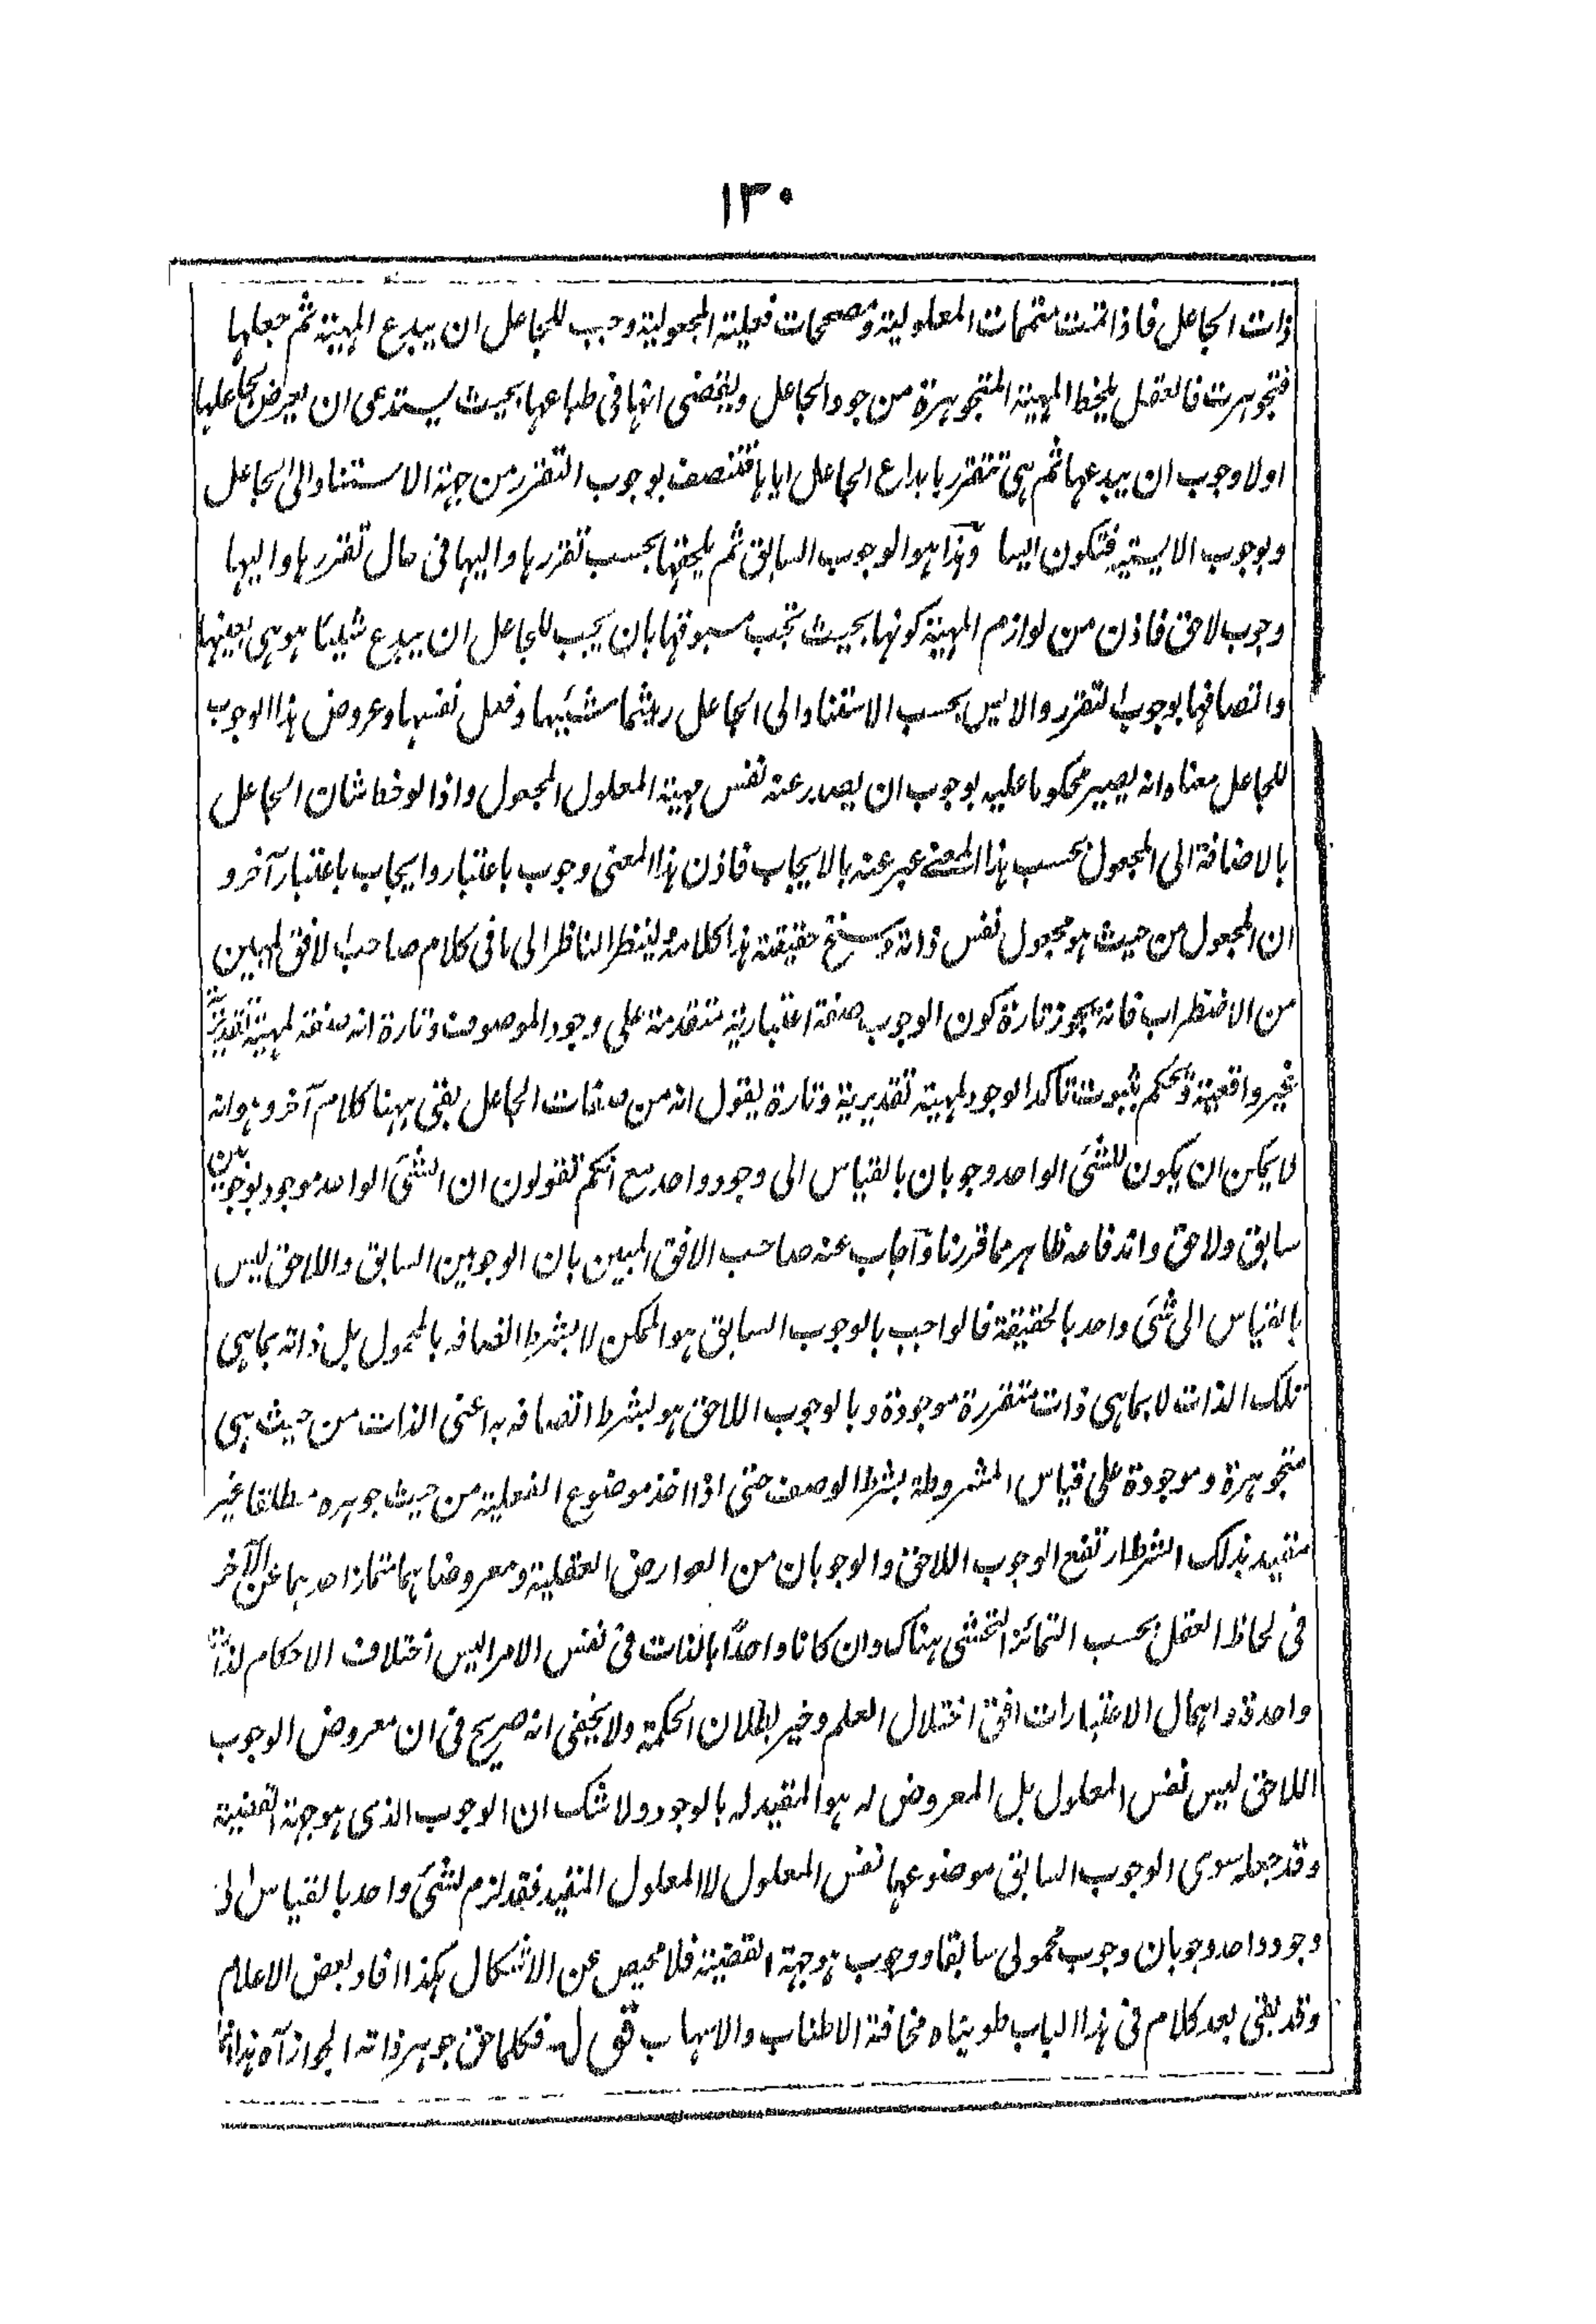 ١٣٠
ذات الجاعل فاذا تمت متممات المعلولية ومصححات فعلية المجعولية وجب للجاعل ان يبدع المهية ثم جعلها
فتجوهرت فالعقل يلحظ المهية المتجوهرة من جود الجاعل ويقضى انها فى طباعها بحيث يستدعى ان يعرض لجاعلها
اولا وجوب ان يبدعها ثم هى تتقرر بابداع الجاعل اياها فتتصف بوجوب التقرر من جهة الاستناد الى الجاعل
وبوجوب الايسية فتكون ايسا وهذا هو الوجوب السابق ثم يلحقها بحسب تقررها وايسها فى حال تقررها وايسها
وجوب لاحق فاذن من لوازم المهية كونها بحيث تجب مسبوقتها بان يجب للجاعل ان يبدع شيئا هو هى بعينها
واتصافها بوجوب التقرر والايس بحسب الاستناد الى الجاعل ريثما شيئيتها وفعل نفسها وعروض هذا الوجوب
للجاعل معناه انه يصير محكوما عليه بوجوب ان يصدر عنه نفس مهية المعلول المجعول واذا لوحظ شان الجاعل
بالاضافة الى المجعول بحسب هذا المعنى عبر عنه بالايجاب فاذن هذا المعنى وجوب باعتبار وايجاب باعتبار آخر و
ان المجعول من حيث هو مجعول نفس ذاته وسنخ حقيقته هذا كلامه لينظر الناظر الى ما فى كلام صاحب الافق المبين
من الاضطراب فانه يجوز تارة كون الوجوب صفة اعتبارية متقدمة على وجود الموصوف وتارة انه صفة لمهية تقديرية
غير واقعية وتحكم بثبوت تاكد الوجود لمهية تقديرية وتارة يقول انه من صفات الجاعل بقى ههنا كلام آخر وهو انه
لا يمكن ان يكون للشئ الواحد وجوبان بالقياس الى وجود واحد مع انكم تقولون ان الشئ الواحد موجود بوجوبين
سابق ولاحق واندفاعه ظاهر مما قررنا وآجاب عنه صاحب الافق المبين بان الوجوبين السابق واللاحق ليس
بالقياس الى شئ واحد بالحقيقة فالواجب بالوجوب السابق هو الممكن لا بشرط اتصافه بالمحمول بل ذاته بما هى
تلك الذات لا بما هى ذات متقررة موجودة وبالوجوب اللاحق هو بشرط اتصافه به اعنى الذات من حيث هى
متجوهرة وموجودة على قياس المشروطة بشرط الوصف حتى اذا اخذ موضوع الفعلية من حيث جوهره مطلقا غير
مقيد بذلك الشرط ارتفع الوجوب اللاحق والوجوبان من العوارض العقلية ومعروضاهما متمايز احدهما عن الآخر
فى لحاظ العقل بحسب التمائز التحيثى هناك وان كانا واحدًا بالذات فى نفس الامر اليس اختلاف الاحكام لذات
واحدة واهمال الاعتبارات افق اختلال العلم وخير لبطلان الحكمة ولا يخفى انه صريح فى ان معروض الوجوب
اللاحق ليس نفس المعلول بل المعروض له هو المتقيد له بالوجود ولا شك ان الوجوب الذى هو جهة القضية
وقد جعله سوى الوجوب السابق موضوعها نفس المعلول لا المعلول المتقيد فقد لزم لشئ واحد بالقياس الى
وجود واحد وجوبان وجوب محمولى سابقا ووجوب هو جهة القضية فلا محيص عن الاشكال هكذا افاد بعض الاعلام
وقد بقى بعد كلام فى هذا الباب طويناه مخافة الاطناب والاسهاب قوله فكلما حق جوهر ذاته الجواز آه هذا انما